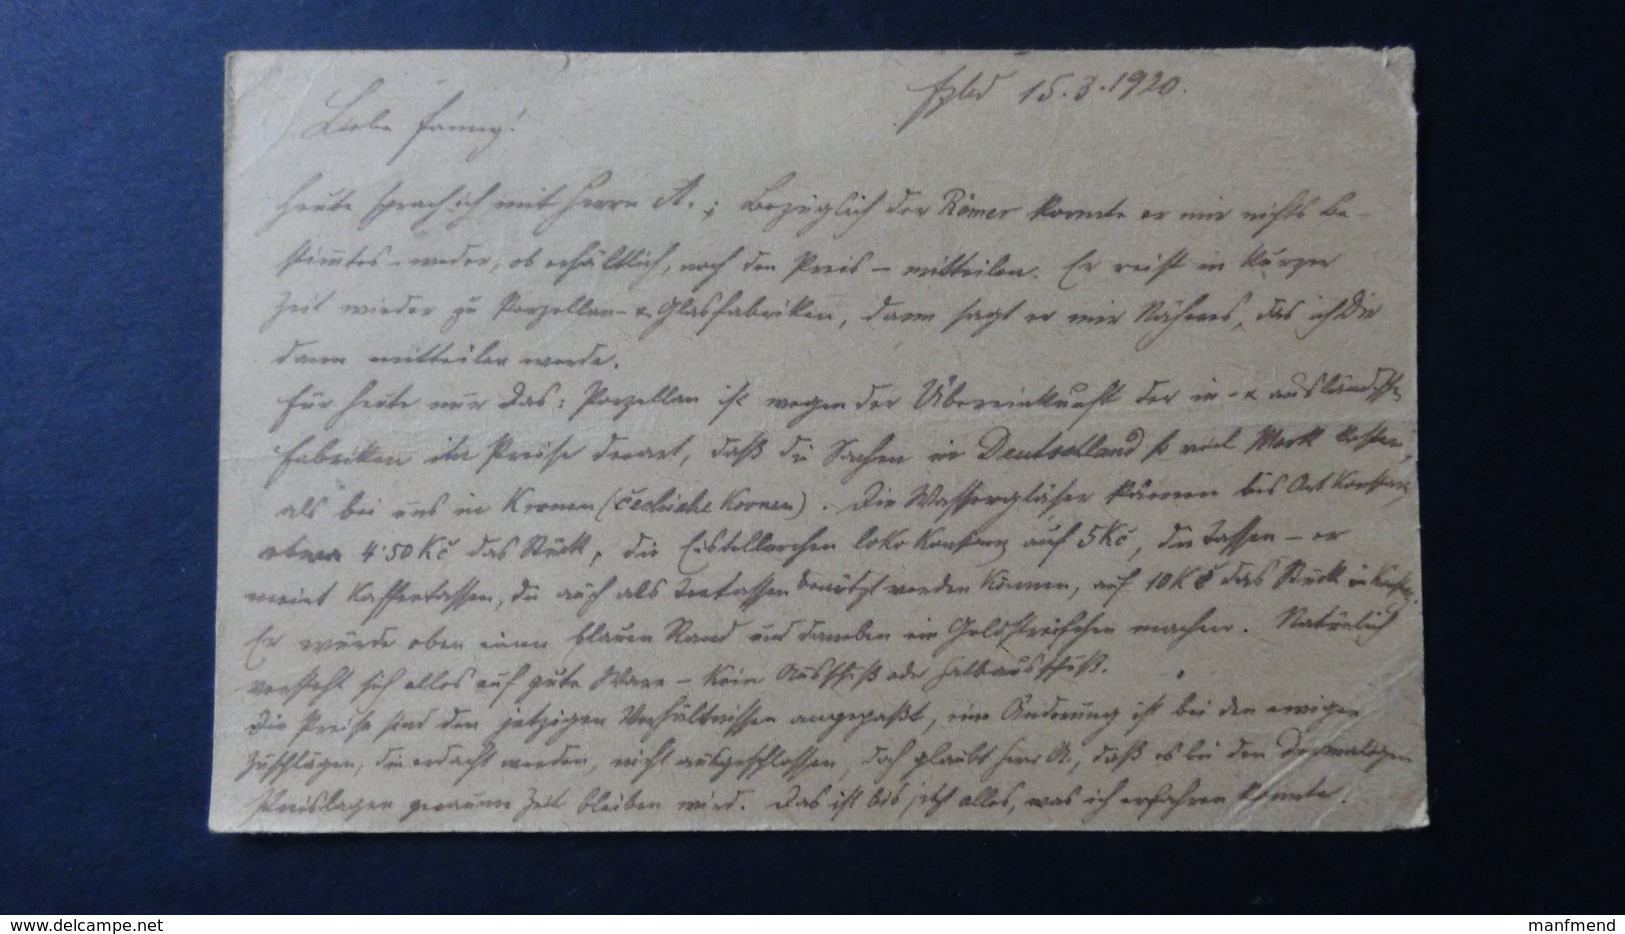 15.3.1920.
Liebe Fanny!
Heute sprach ich mit Herrn A.; bezüglich der Römer konnte er mir nichts be-
stimmtes – weder, ob erhältlich, noch den Preis – mitteilen. Er reist in kurzer
Zeit wieder zu Porzellan- & Glasfabriken, dann sagt er mir Näheres, das ich Dir
dann mitteilen werde.
Für heute nur das: Porzellan ist wegen der Übereinkunft der in- & ausländischen
Fabriken im Preise derart, daß die Sachen in Deutschland so viel Mark kosten,
als bei uns in Kronen (čechische Kronen). Die Wassergläser kämen bis Ort Konstanz
etwa 4·50 Kč das Stück, die loko Konstanz auf 5 Kč, die Tassen – er
meint Kaffeetassen, die auch als Teetassen benützt werden können, auf 10 Kč das Stück in Konstanz.
Er würde oben einen blauen Rand und daneben ein Goldstreifchen machen. Natürlich
versteht sich alles auf gute Ware – kein Ausschuß oder Halbausschuß.
Die Preise sind den jetzigen Verhältnissen angepaßt, eine Änderung ist bei den ewigen
Zuschlägen, die erdacht werden, nicht ausgeschlossen, doch glaubt Herr A., daß es bei den dermaligen
Preislagen geraume Zeit bleiben wird. Das ist bis jetzt alles, was ich erfahren konnte.
manfmend